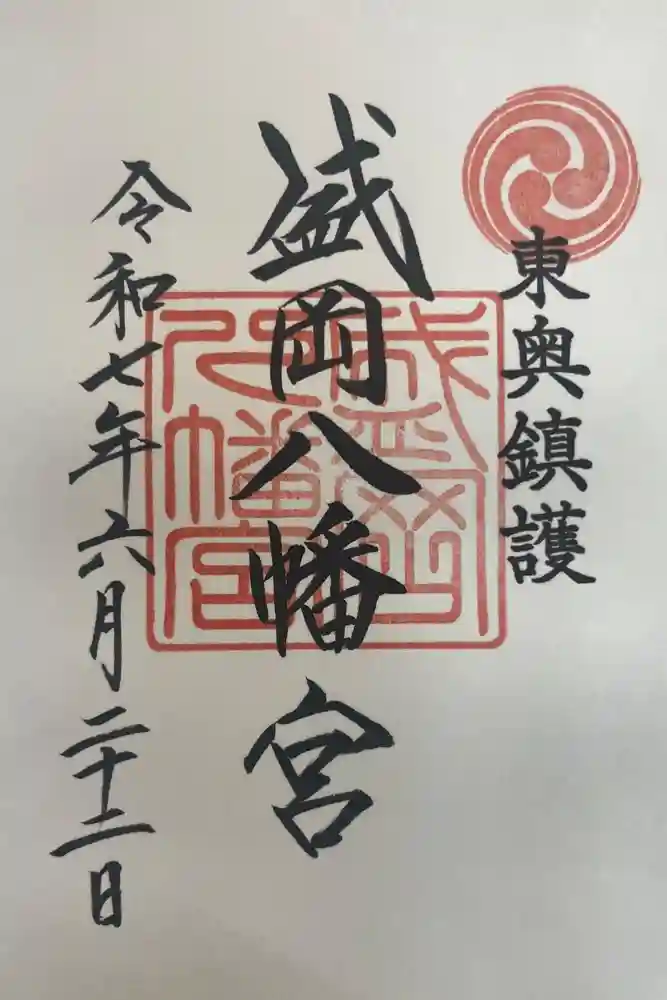 東奥鎮護
盛岡八幡宮
盛岡八幡宮
令和七年六月二十二日